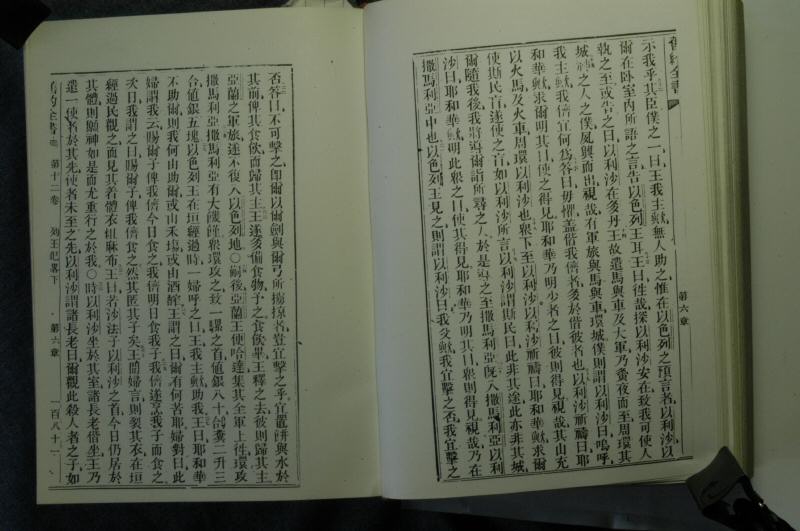 舊約全書
第六章
示我乎其臣僕之一曰王我主歟無人助之惟在以色列之預言者以利沙以
爾在卧室內所語之言告以色列王耳王曰徃哉探以利沙安在致我可使人
執之至或告之曰以利沙在多丹王故遣馬與車及大軍乃夤夜而至周環其
城神之人之僕夙興而出視哉有軍旅與馬與車環城僕則謂以利沙曰嗚呼
我主歟我儕宜何為答曰毋懼蓋偕我儕者多於偕彼者也以利沙祈禱曰耶
和華歟求爾明其目使之得見耶和華乃明少者之目彼則得見視哉其山充
以火馬及火車周環以利沙也衆下至以利沙以利沙祈禱曰耶和華歟求爾
使斯民盲遂使之盲如以利沙所言以利沙謂斯民曰此非其途此亦非其城
爾隨我後我將導爾詣所尋之人於是導之至撒馬利亞既入撒馬利亞以利
沙曰耶和華歟明此衆之目使其得見耶和華乃明其目衆則得見視哉乃在
撒馬利亞中也以色列王見之則謂以利沙曰我父歟我宜擊之否我宜擊之
否答曰不可擊之卽爾以爾劍與爾弓所擄掠者豈宜擊之乎宜置餅與水於
其前俾其食飲而歸其主王遂多備食物予之食飲畢王釋之去彼則歸其主
亞蘭之軍旅遂不復入以色列地○嗣後亞蘭王便哈達集其全軍上徃環攻
撒馬利亞撒馬利亞有大饑饉衆環攻之致一驢之首值銀八十鴿糞一升三
合值銀五塊以色列王在垣經過時一婦呼之曰王我主歟助我王曰耶和華
不助爾則我何由助爾或由禾場或由酒醡王謂之曰爾有何若耶婦對曰此
婦謂我云賜爾子俾我儕今日食之我儕明日食我子我儕遂烹我子而食之
次日我謂之曰賜爾子俾我儕食之然其匿其子矣王聞婦言則裂其衣在垣
經過民觀之而見其若體衣裡麻布王曰若沙法子以利沙之首今日仍居於
其體則願神如是而尤重行之於我○時以利沙坐於其室諸長老偕坐王乃
遣一使者於其先使者未至之先以利沙謂諸長老曰爾觀此殺人者之子如
舊約全書 第十二卷 列王紀畧下 第六章 一百八十一